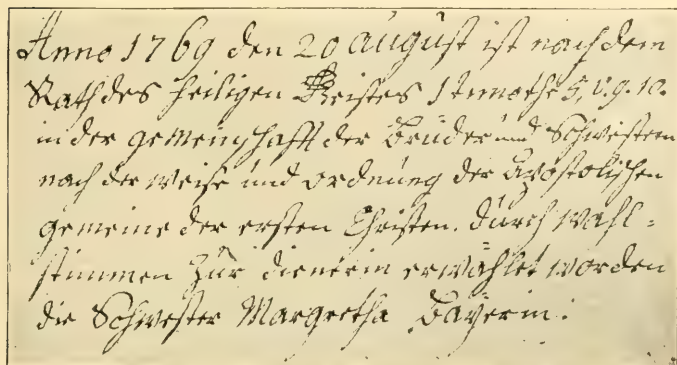 Anno 1769 den 20 August ist nach dem
Rath des Heiligen Geistes 1 Timothe 5, v. 9. 10.
in der gemeinschafft der Brüder und Schwestern
nach der weise und ordnung der Apostolischen
gemeine der ersten Christen. durch wahl=
stimmen zur dienerin erwählet worden
die Schwester Margretha Bayerin.